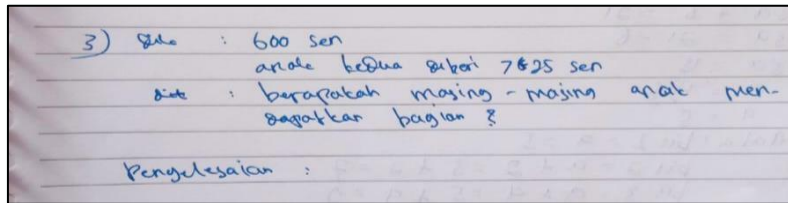 3) dik : 600 sen
anak kedua diberi 725 sen
dit : berapakah masing-masing anak men-
dapatkan bagian ?
Pengelesaian :